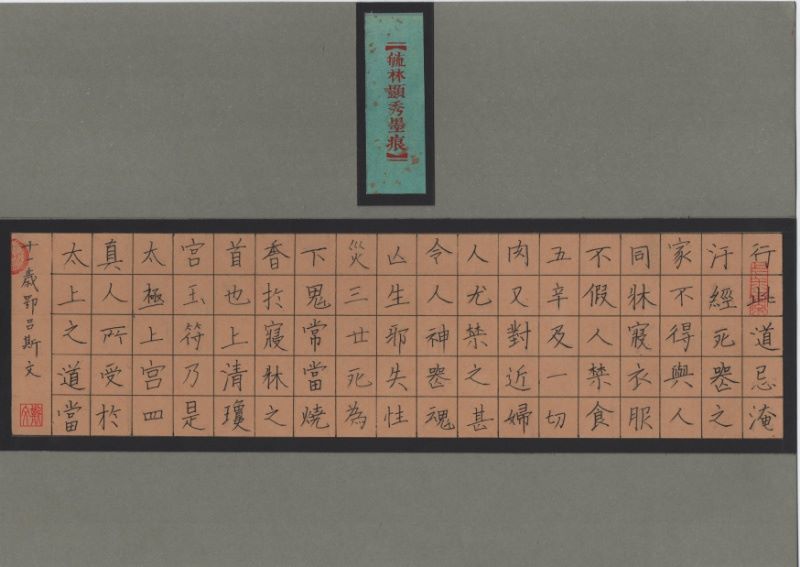 【毓林顯秀墨痕】
行此道忌淹
汙經死喪之
家不得與人
同牀寢衣服
不假人禁食
五辛及一切
肉又對近婦
人尤禁之甚
令人神喪魂
亡生邪失性
災三世死為
下鬼常當燒
香於寢牀之
首也上清瓊
宮玉符乃是
太極上宮四
真人所受於
太上之道當
十一歲鄂呂斯文